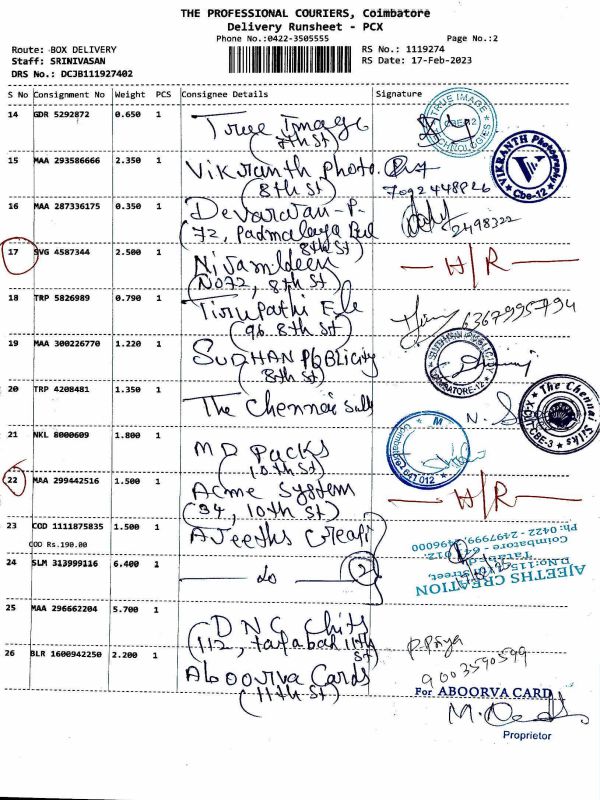 THE PROFESSIONAL COURIERS, Coimbatore
Delivery Runsheet - PCX
Phone No.:0422-3505555
Page No.:2
Route: BOX DELIVERY
RS No.: 1119274
Staff: SRINIVASAN
RS Date: 17-Feb-2023
DRS No.: DCJB111927402
S No Consignment No Weight PCS Consignee Details Signature
14 GDR 5292872 0.650 1 True Image
(8th St)
TRUE IMAGE TECHNOLOGIES CBE-12
15 MAA 293586666 2.350 1 Vikranth Photo.
(8th St)
7092448826
VIKRANTH Photography Cbe-12
16 MAA 287336175 0.350 1 Devarajan-P.
(72, Padmalaya
8th St)
2498322
17 SVG 4587344 2.500 1 Nizamldeen
(No72, 8th St)
H/R
18 TRP 5826989 0.790 1 Tirupathi Ele
(96 8th St)
6367995794
19 MAA 300226770 1.220 1 SUDHAN PUBLICITY
(8th St)
SUDHAN PUBLICITY COIMBATORE-12
20 TRP 4208481 1.350 1 The Chennai Silks
The Chennai Silks CBE-3
21 NKL 8000609 1.800 1 MD Packs
(10th St)
22 MAA 299442516 1.500 1 Acme System
(34, 10th St)
H/R
23 COD 1111875835 1.500 1 Ajeeths Creati
COD Rs.190.00
AJEETHS CREATION
D.No:115
Coimbatore - 641 012.
Ph: 0422 - 2497999, 2496000
24 SLM 313999116 6.400 1 do 2
25 MAA 296662204 5.700 1 DNC Chits
(112, Tatabad 11th
St)
P. Priya
9003590599
26 BLR 1600942250 2.200 1 Aboorva Cards
(11th St)
For ABOORVA CARD
Proprietor